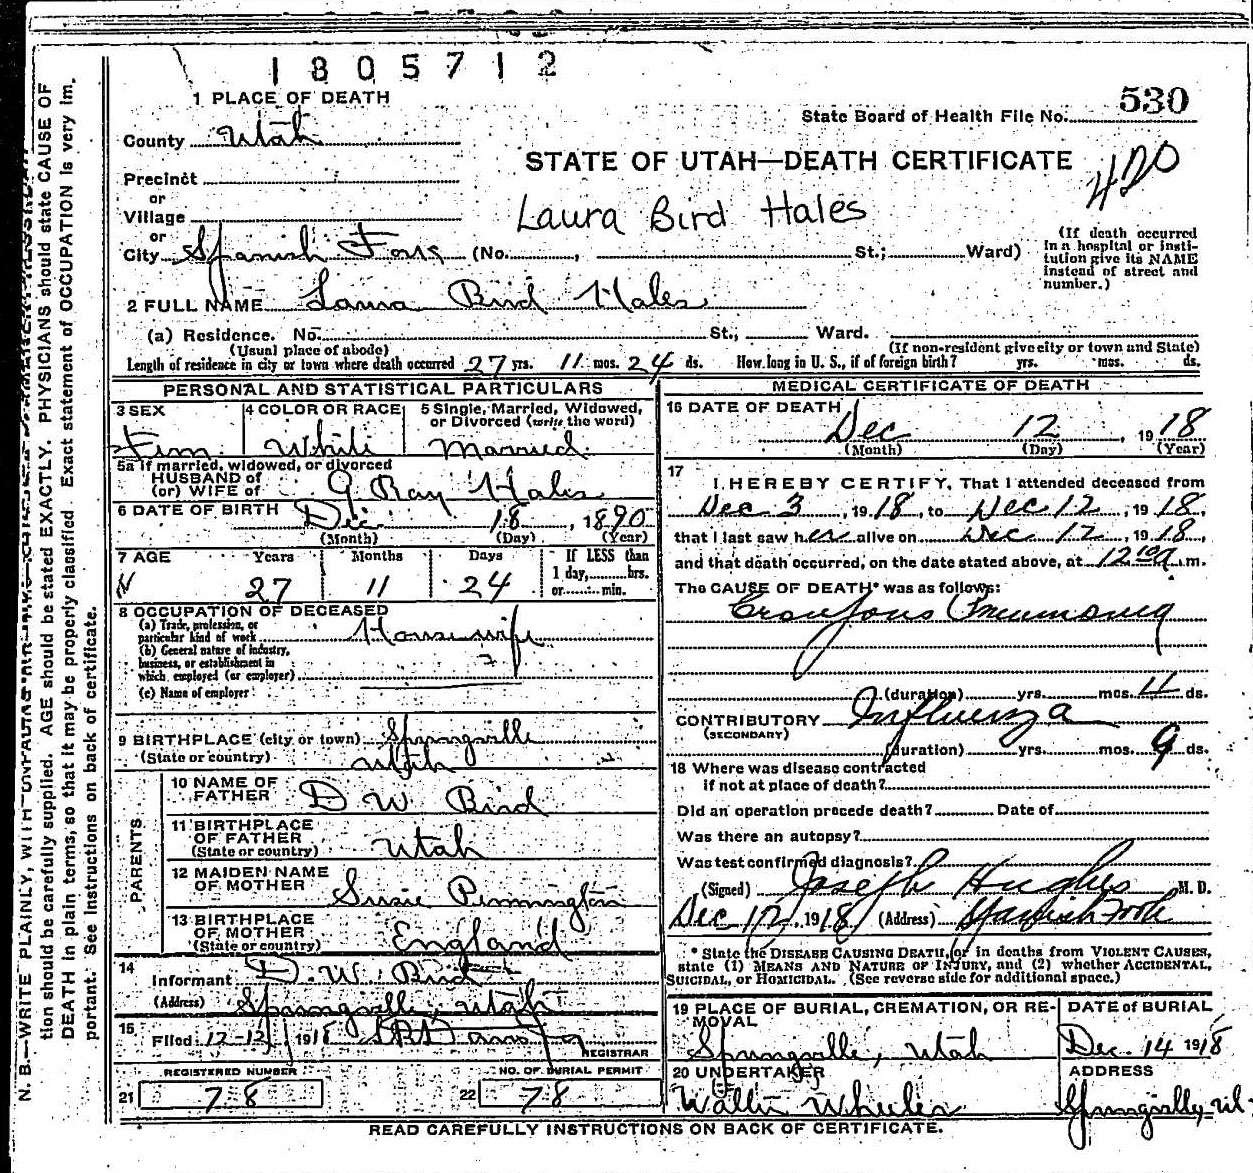 1805712
1 PLACE OF DEATH
State Board of Health File No. 530
County Utah
STATE OF UTAH—DEATH CERTIFICATE
420
Precinct
or
Village
Laura Bird Hales
or
City Spanish Fork (No. , St.; Ward)
(If death occurred
in a hospital or insti-
tution give its NAME
instead of street and
number.)
2 FULL NAME Laura Bird Hales
(a) Residence. No. St., Ward.
(Usual place of abode)
(If non-resident give city or town and State)
Length of residence in city or town where death occurred 27 yrs. 11 mos. 24 ds. How long in U. S., if of foreign birth? yrs. mos. ds.
PERSONAL AND STATISTICAL PARTICULARS
3 SEX
4 COLOR OR RACE
5 Single, Married, Widowed,
or Divorced (write the word)
Fem. White Married.
5a If married, widowed, or divorced
HUSBAND of
(or) WIFE of G Ray Hales
6 DATE OF BIRTH Dec 18, 1890
(Month) (Day) (Year)
7 AGE Years Months Days
If LESS than
1 day, hrs.
or min.
27 11 24
8 OCCUPATION OF DECEASED
(a) Trade, profession, or
particular kind of work Housewife
(b) General nature of industry,
business, or establishment in
which employed (or employer)
(c) Name of employer
9 BIRTHPLACE (city or town) Springville
(State or country) Utah
PARENTS
10 NAME OF
FATHER D W Bird
11 BIRTHPLACE
OF FATHER
(State or country) Utah
12 MAIDEN NAME
OF MOTHER Susie Pinnington
13 BIRTHPLACE
OF MOTHER
(State or country) England
14
Informant D. W. Bird
(Address) Springville, Utah
15
Filed 12-12, 1918
REGISTRAR
REGISTERED NUMBER
NO. OF BURIAL PERMIT
21 78
22 78
MEDICAL CERTIFICATE OF DEATH
16 DATE OF DEATH
Dec 12, 1918
(Month) (Day) (Year)
17
I HEREBY CERTIFY, That I attended deceased from
Dec 3, 1918, to Dec 12, 1918,
that I last saw her alive on Dec 12, 1918,
and that death occurred, on the date stated above, at 12 10 a.m.
The CAUSE OF DEATH* was as follows:
Croupous Pneumonia
(duration) yrs. mos. 11 ds.
CONTRIBUTORY Influenza
(SECONDARY)
(duration) yrs. mos. 9 ds.
18 Where was disease contracted
if not at place of death?
Did an operation precede death? Date of
Was there an autopsy?
Was test confirmed diagnosis?
(Signed) Joseph Hughes M. D.
Dec 12, 1918 (Address) Spanish Fork
* State the DISEASE CAUSING DEATH, or in deaths from VIOLENT CAUSES,
state (1) MEANS AND NATURE OF INJURY, and (2) whether ACCIDENTAL,
SUICIDAL, or HOMICIDAL. (See reverse side for additional space.)
19 PLACE OF BURIAL, CREMATION, OR RE-
MOVAL
Springville, Utah
DATE of BURIAL
Dec. 14 1918
20 UNDERTAKER
Walter Wheeler
ADDRESS
Springville, Ut
READ CAREFULLY INSTRUCTIONS ON BACK OF CERTIFICATE.
N. B.—WRITE PLAINLY, WITH
tion should be carefully supplied. AGE should be stated EXACTLY. PHYSICIANS should state CAUSE OF
DEATH in plain terms, so that it may be properly classified. Exact statement of OCCUPATION is very im-
portant. See Instructions on back of certificate.